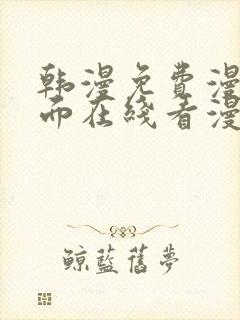 韩漫免费漫
面在线看漫
鲸蓝旧梦